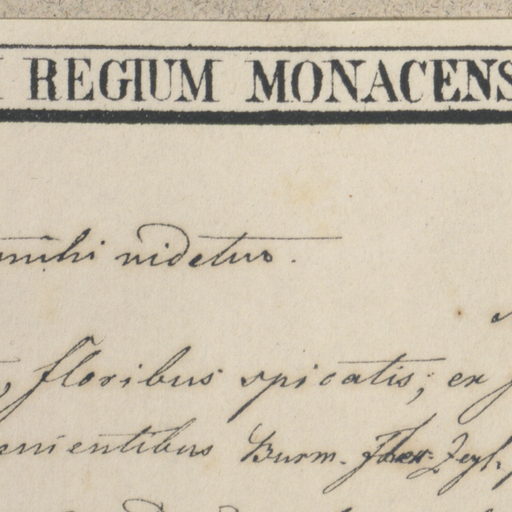 REGIUM MONACENS
mihi videtur.
floribus spicatis; ex
enientibus Burm. Zeyl.